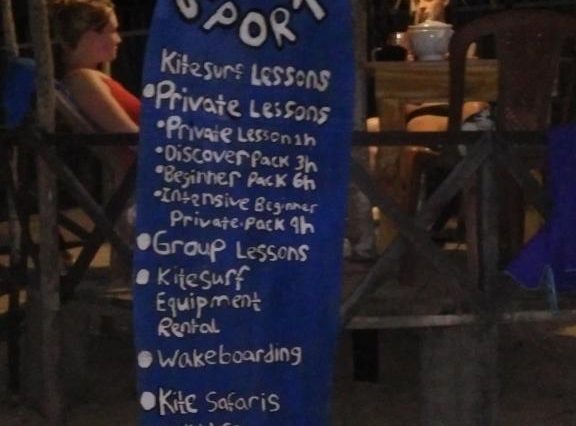 SPORT
Kitesurf Lessons
Private Lessons
Private Lesson 1h
Discover Pack 3h
Beginner Pack 6h
Intensive Beginner
Private Pack 9h
Group Lessons
Kitesurf
Equipment
Rental
Wakeboarding
Kite Safaris